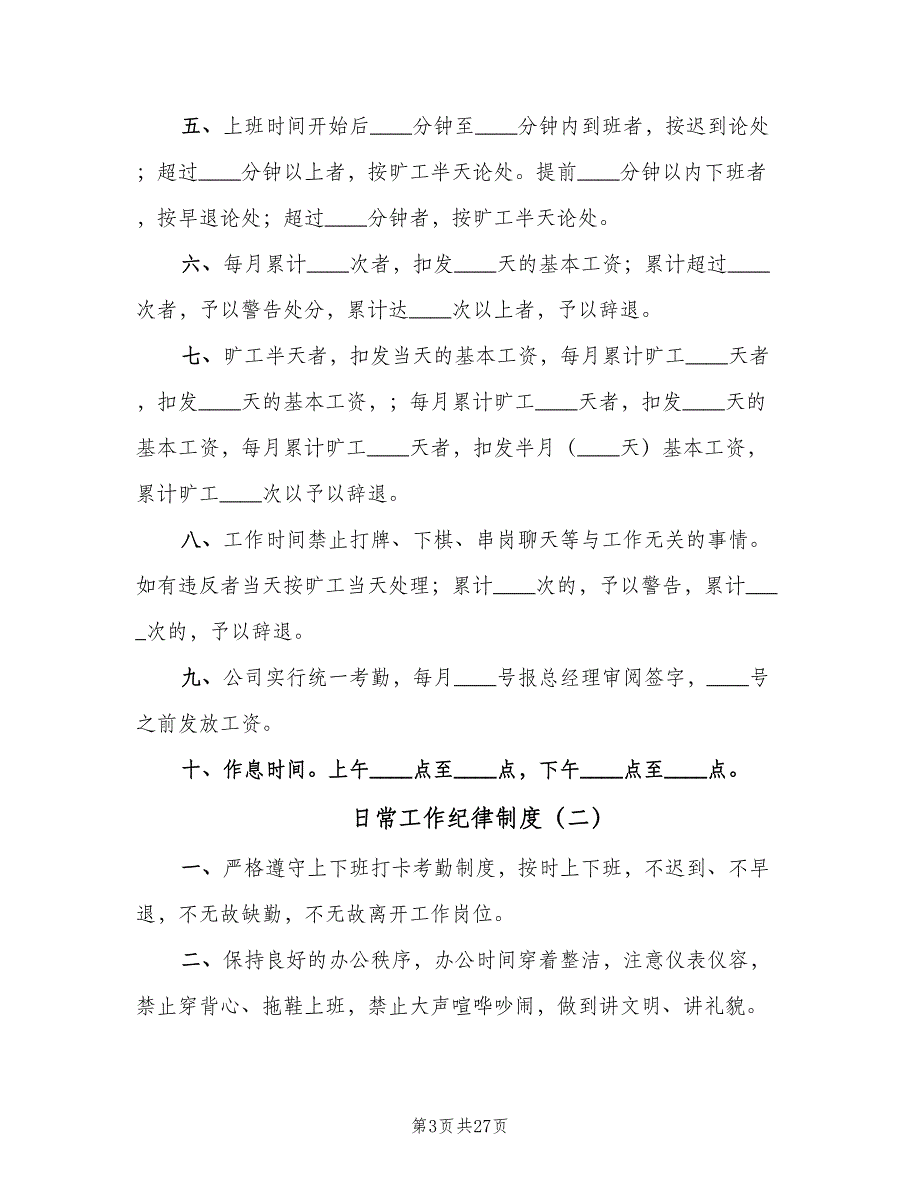 五、上班时间开始后____分钟至____分钟内到班者，按迟到论处
；超过____分钟以上者，按旷工半天论处。提前____分钟以内下班者
，按早退论处；超过____分钟者，按旷工半天论处。
六、每月累计____次者，扣发____天的基本工资；累计超过____
次者，予以警告处分，累计达____次以上者，予以辞退。
七、旷工半天者，扣发当天的基本工资，每月累计旷工____天者
，扣发____天的基本工资，；每月累计旷工____天者，扣发____天的
基本工资，每月累计旷工____天者，扣发半月（____天）基本工资，
累计旷工____次以予以辞退。
八、工作时间禁止打牌、下棋、串岗聊天等与工作无关的事情。
如有违反者当天按旷工当天处理；累计____次的，予以警告，累计___
_次的，予以辞退。
九、公司实行统一考勤，每月____号报总经理审阅签字，____号
之前发放工资。
十、作息时间。上午____点至____点，下午____点至____点。
日常工作纪律制度（二）
一、严格遵守上下班打卡考勤制度，按时上下班，不迟到、不早
退，不无故缺勤，不无故离开工作岗位。
二、保持良好的办公秩序，办公时间穿着整洁，注意仪表仪容，
禁止穿背心、拖鞋上班，禁止大声喧哗吵闹，做到讲文明、讲礼貌。
第3页共27页